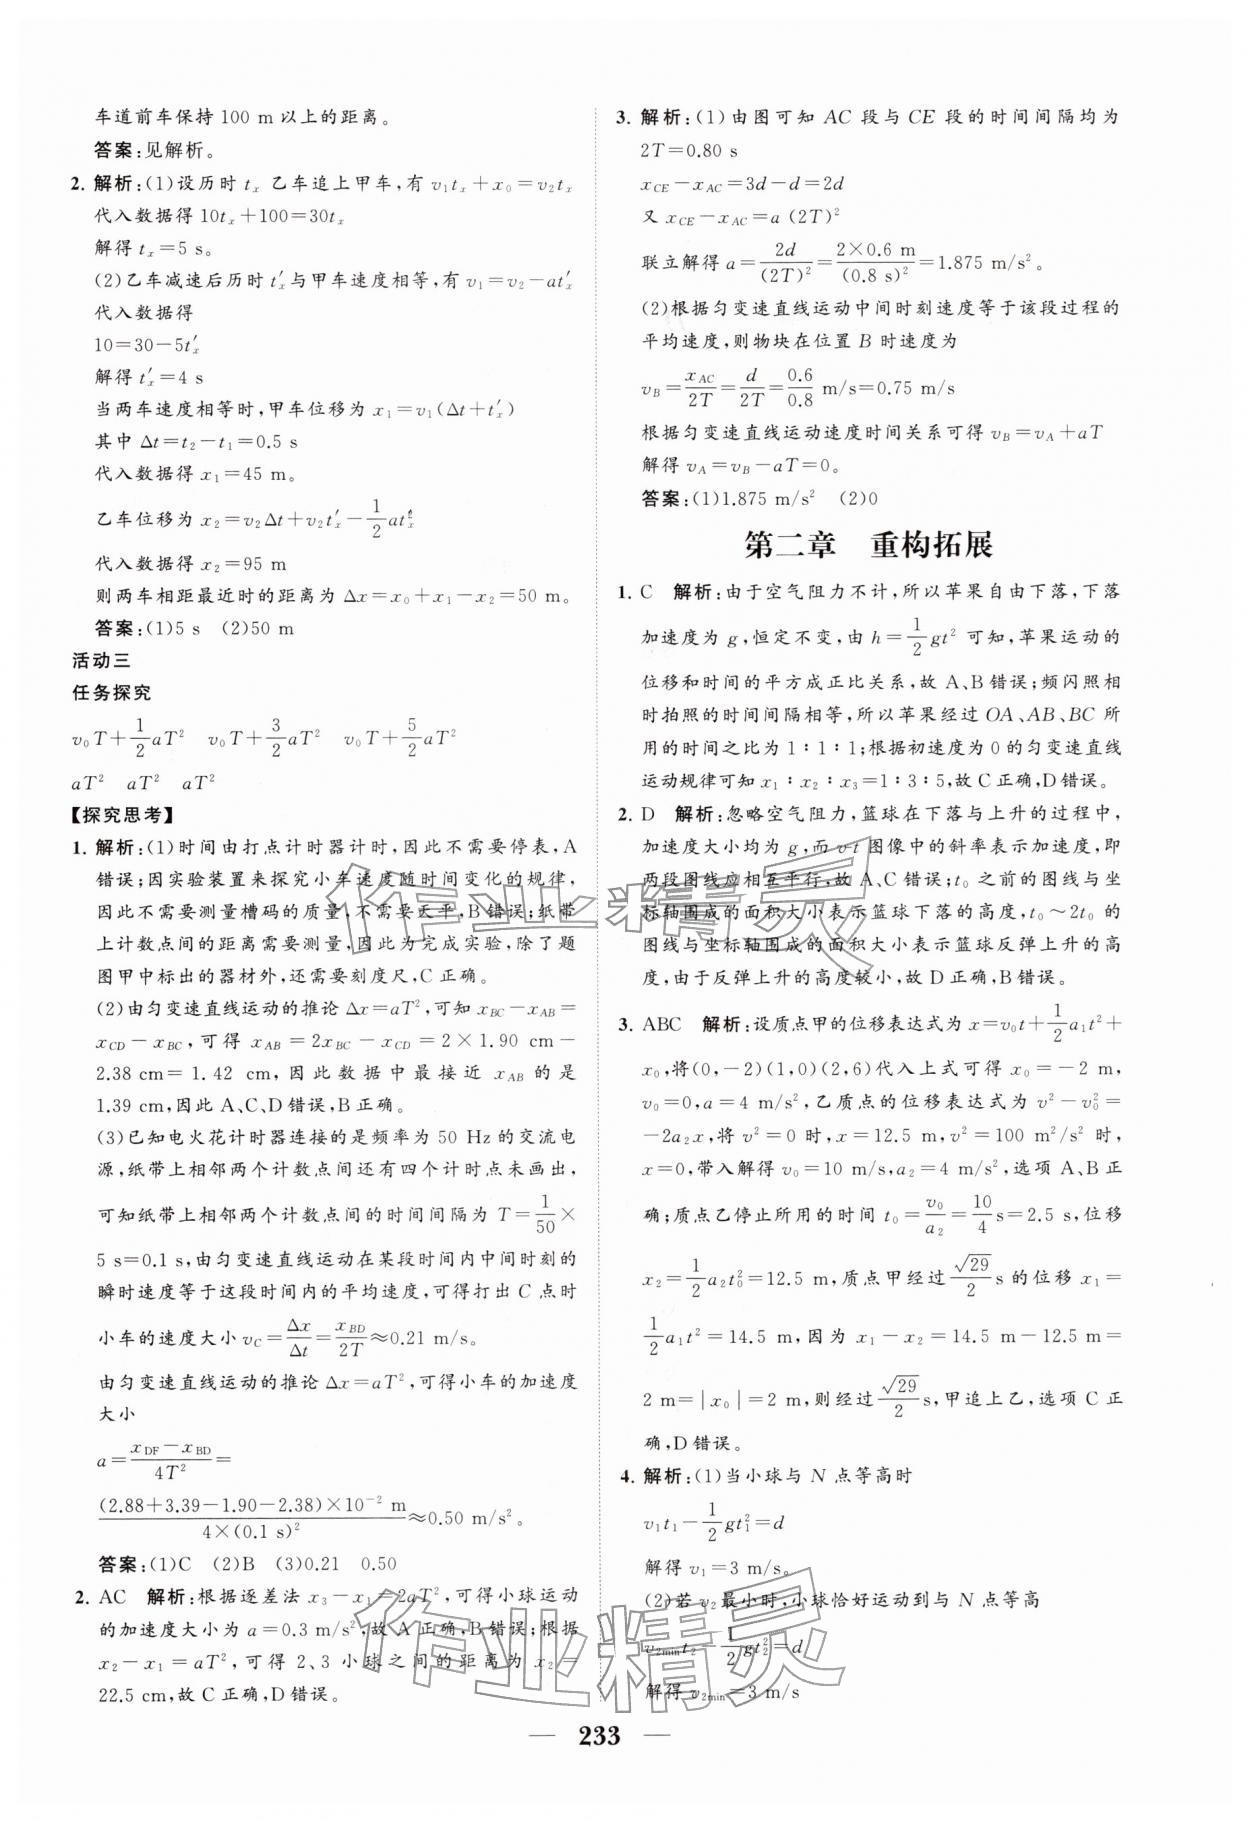 车道前车保持 100 m 以上的距离。
答案:见解析。
2. 解析:(1)设历时 tₓ 乙车追上甲车,有 v₁tₓ+x₀=v₂tₓ
代入数据得 10tₓ+100=30tₓ
解得 tₓ=5 s。
(2)乙车减速后历时 tₓ′与甲车速度相等,有 v₁=v₂-atₓ′
代入数据得
10=30-5tₓ′
解得 tₓ′=4 s
当两车速度相等时,甲车位移为 x₁=v₁(Δt+tₓ′)
其中 Δt=t₂-t₁=0.5 s
代入数据得 x₁=45 m。
乙车位移为 x₂=v₂Δt+v₂tₓ′-1/2 atₓ′²
代入数据得 x₂=95 m
则两车相距最近时的距离为 Δx=x₀+x₁-x₂=50 m。
答案:(1)5 s (2)50 m
活动三
任务探究
v₀T+1/2 aT² v₀T+3/2 aT² v₀T+5/2 aT²
aT² aT² aT²
【探究思考】
1. 解析:(1)时间由打点计时器计时,因此不需要停表,A
错误;因实验装置来探究小车速度随时间变化的规律,
因此不需要测量槽码的质量,不需要天平,B错误;纸带
上计数点间的距离需要测量,因此为完成实验,除了题
图甲中标出的器材外,还需要刻度尺,C正确。
(2)由匀变速直线运动的推论 Δx=aT²,可知 x_BC-x_AB=
x_CD-x_BC,可得 x_AB=2x_BC-x_CD=2×1.90 cm-
2.38 cm=1.42 cm,因此数据中最接近 x_AB 的是
1.39 cm,因此 A、C、D错误,B正确。
(3)已知电火花计时器连接的是频率为 50 Hz 的交流电
源,纸带上相邻两个计数点间还有四个计时点未画出,
可知纸带上相邻两个计数点间的时间间隔为 T=1/50×
5 s=0.1 s,由匀变速直线运动在某段时间内中间时刻的
瞬时速度等于这段时间内的平均速度,可得打出 C 点时
小车的速度大小 v_C=Δx/Δt=x_BD/2T≈0.21 m/s。
由匀变速直线运动的推论 Δx=aT²,可得小车的加速度
大小
a=(x_DF-x_BD)/4T²=
(2.88+3.39-1.90-2.38)×10⁻² m/4×(0.1 s)²≈0.50 m/s²。
答案:(1)C (2)B (3)0.21 0.50
2. AC 解析:根据逐差法 x₃-x₁=2aT²,可得小球运动
的加速度大小为 a=0.3 m/s²,故 A 正确,B错误;根据
x₂-x₁=aT²,可得 2、3 小球之间的距离为 x₂=
22.5 cm,故 C 正确,D错误。
3. 解析:(1)由图可知 AC 段与 CE 段的时间间隔均为
2T=0.80 s
x_CE-x_AC=3d-d=2d
又 x_CE-x_AC=a(2T)²
联立解得 a=2d/(2T)²=2×0.6 m/(0.8 s)²=1.875 m/s²。
(2)根据匀变速直线运动中间时刻速度等于该段过程的
平均速度,则物块在位置 B 时速度为
v_B=x_AC/2T=d/2T=0.6/0.8 m/s=0.75 m/s
根据匀变速直线运动速度时间关系可得 v_B=v_A+aT
解得 v_A=v_B-aT=0。
答案:(1)1.875 m/s² (2)0
第二章 重构拓展
1. C 解析:由于空气阻力不计,所以苹果自由下落,下落
加速度为 g,恒定不变,由 h=1/2 gt² 可知,苹果运动的
位移和时间的平方成正比关系,故 A、B错误;频闪照相
时拍照的时间间隔相等,所以苹果经过 OA、AB、BC 所
用的时间之比为 1∶1∶1;根据初速度为 0 的匀变速直线
运动规律可知 x₁∶x₂∶x₃=1∶3∶5,故 C 正确,D错误。
2. D 解析:忽略空气阻力,篮球在下落与上升的过程中,
加速度大小均为 g,而 v-t 图像中的斜率表示加速度,即
两段图线应相互平行,故 A、C错误;t₀ 之前的图线与坐
标轴围成的面积大小表示篮球下落的高度,t₀～2t₀ 的
图线与坐标轴围成的面积大小表示篮球反弹上升的高
度,由于反弹上升的高度较小,故 D 正确,B错误。
3. ABC 解析:设质点甲的位移表达式为 x=v₀t+1/2 a₁t²+
x₀,将(0,-2)(1,0)(2,6)代入上式可得 x₀=-2 m,
v₀=0,a=4 m/s²,乙质点的位移表达式为 v²-v₀²=
-2a₂x,将 v²=0 时,x=12.5 m,v²=100 m²/s² 时,
x=0,带入解得 v₀=10 m/s,a₂=4 m/s²,选项 A、B正
确;质点乙停止所用的时间 t₀=v₀/a₂=10/4 s=2.5 s,位移
x₂=1/2 a₂t₀²=12.5 m,质点甲经过 √29/2 s 的位移 x₁=
1/2 a₁t²=14.5 m,因为 x₁-x₂=14.5 m-12.5 m=
2 m=|x₀|=2 m,则经过 √29/2 s,甲追上乙,选项 C 正
确,D错误。
4. 解析:(1)当小球与 N 点等高时
v₁t₁-1/2 gt₁²=d
解得 v₁=3 m/s。
(2)若 v₂ 最小时,小球恰好运动到与 N 点等高
v₂mint₂-1/2 gt₂²=d
解得 v₂min=3 m/s
作业精灵
作业精灵
— 233 —